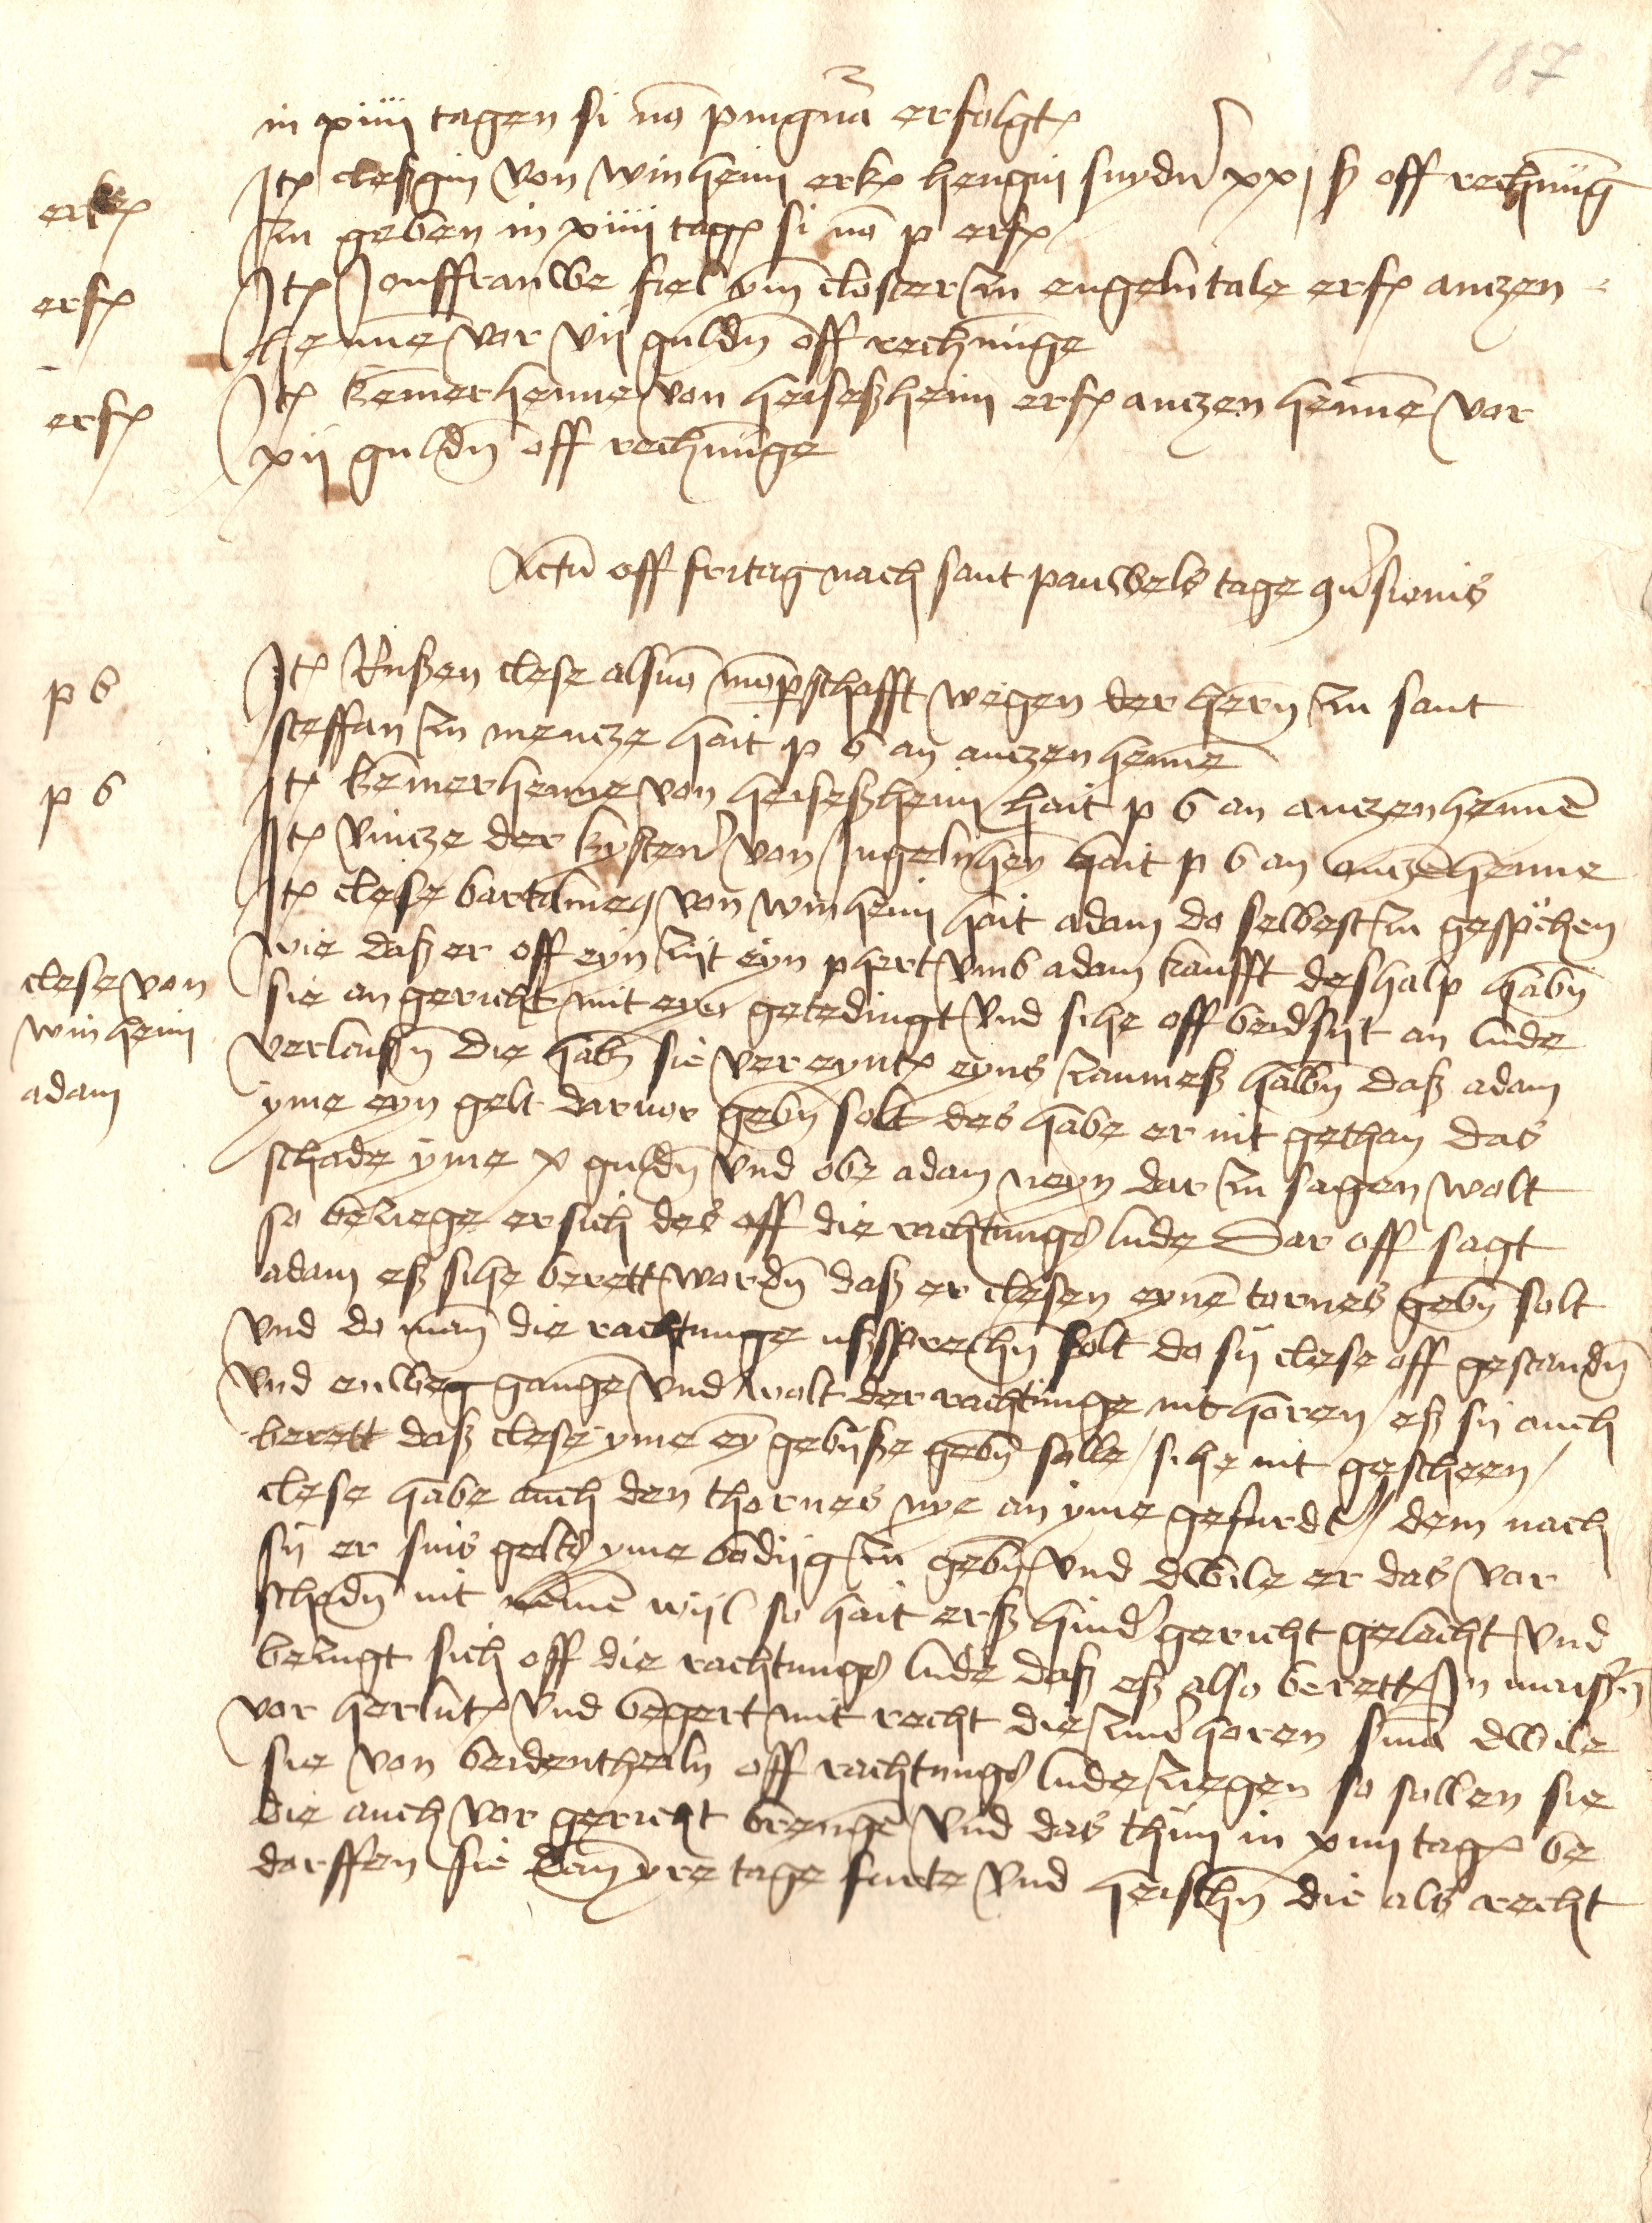 187
in xiiii tagen si nō pīngnā erfolgt
erk
Itē cleßgin von winheim erkē hengin snydn̄ xxi ß off rechnūg
zu geben in xiiii tagē si nō p erf
erf
Itē Jonffrauwe fiel ym closter zu engelntale erf anczen
henne vor vii guldn̄ off rechnūge
erf
Itē kēmerhenne von heisesheim erf anczen hennē vor
xii guldn̄ off rechnūge
Actū off fritag nach sant pauwels tage 9ūsionis
p b
Itē Rußen clese als nō mōpschafft wegen der hern̄ zu sant
steffan zu mencze hait p b an anczen henne
p b
Itē kēmerhenne von heisesheim hait p b an anczen hennē
Itē vincze der kystenr̄ von Ingelnheȳ hait p b an anczēhenne
Itē clese bartolmeꝰ von winheim hait adam do selbest zu gesp̄chen
clese von
winheim
adam
wie daß er off eyn zijt eyn phert vmb adam kaufft deshalp habn̄
sie an gericht mit eyn getedingt vnd sihe off beid̄sijt an lude
verlaißn̄ die habn̄ sie vereyntē eyns zaumeß halbn̄ daß adam
yme eyn gelt daruor gebn̄ solt des habe er nit gethan das
schade yme x guldn̄ vnd obe adam neyn dar zu sagen wolt
so beziege er sich des off die rachtungs lude Dar off sagt
adam eß sihe berett wordn̄ daß er clesen eynē tornes gebn̄ solt
vnd do man̄ die rachtunge ußsprechn̄ solt do sij clese off gestandn̄
vnd enweg gangē vnd wolt der rachtunge nit horen / eß sij auch
berett daß clese yme eȳ gebijße gebn̄ solle / sihe nit gescheen /
clese habe auch den thornes nye an yme gefurdt / dem nach
sij er sins gelts yme bodijg zu gebn̄ vnd dwile er das vor
schedn̄ nit nēmē wijl so hait erß hind̄ gericht gelacht vnd
bezugt sich off die rachtungs lude daß eß also berett In maißn̄
vor herlutē vnd begert mit recht die zuūhoren sīnā dwile
sie von beidentheiln off rachtungs lude ziegen so sollen sie
die auch vor gericht brengē vnd das thun in xiiii tagē be
dorffen sie dan̄ yre tage furte vnd heischn̄ die als recht